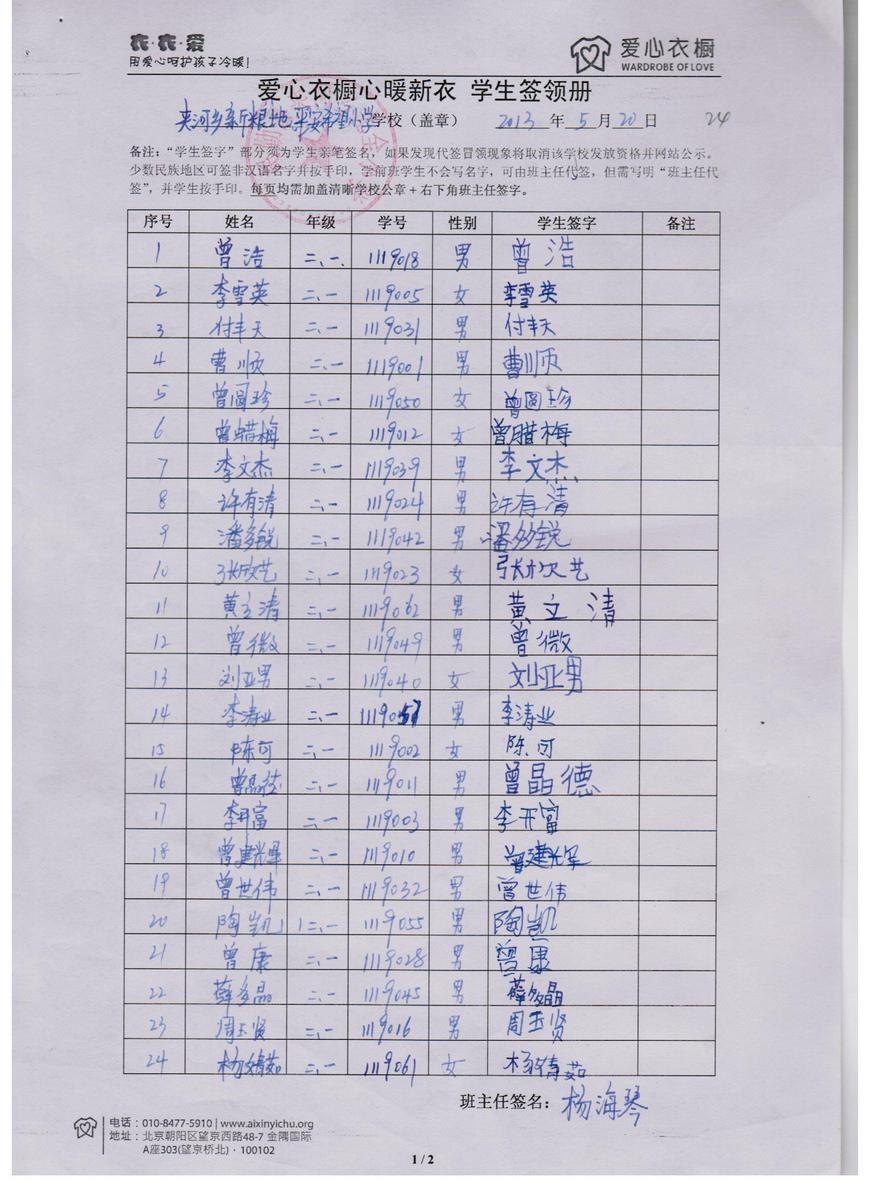 衣·衣·爱
用爱心呵护孩子冷暖!
爱心衣橱
WARDROBE OF LOVE
爱心衣橱心暖新衣 学生签领册
夹河乡新粮地平安希望小学学校（盖章） 2013 年 5 月 20 日 24
备注：“学生签字”部分须为学生亲笔签名，如果发现代签冒领现象将取消该学校发放资格并网站公示。
少数民族地区可签非汉语名字并按手印，学前班学生不会写名字，可由班主任代签，但需写明“班主任代
签”，并学生按手印。每页均需加盖清晰学校公章+右下角班主任签字。
序号 姓名 年级 学号 性别 学生签字 备注
1 曾浩 二、一 1119018 男 曾浩
2 李雪英 二、一 1119005 女 李雪英
3 付丰天 二、一 1119031 男 付丰天
4 曹顺 二、一 1119001 男 曹顺
5 曾圆珍 二、一 1119050 女 曾圆珍
6 曾腊梅 二、一 1119012 女 曾腊梅
7 李文杰 二、一 1119039 男 李文杰
8 许有清 二、一 1119024 男 许有清
9 潘多锐 二、一 1119042 男 潘多锐
10 张欣艺 二、一 1119023 女 张欣艺
11 黄立清 二、一 1119062 男 黄立清
12 曾微 二、一 1119049 男 曾微
13 刘亚男 二、一 1119040 女 刘亚男
14 李涛业 二、一 1119057 男 李涛业
15 陈可 二、一 1119002 女 陈可
16 曾晶德 二、一 1119011 男 曾晶德
17 李开富 二、一 1119003 男 李开富
18 曾建辉 二、一 1119010 男 曾建辉
19 曾世伟 二、一 1119032 男 曾世伟
20 陶凯 二、一 1119055 男 陶凯
21 曾康 二、一 1119028 男 曾康
22 薛多晶 二、一 1119045 男 薛多晶
23 周玉贤 二、一 1119016 男 周玉贤
24 杨婧茹 二、一 1119061 女 杨婧茹
班主任签名：杨海琴
电话：010-8477-5910 | www.aixinyichu.org
地址：北京朝阳区望京西路48-7 金隅国际
A座303(望京桥北)·100102
1 / 2